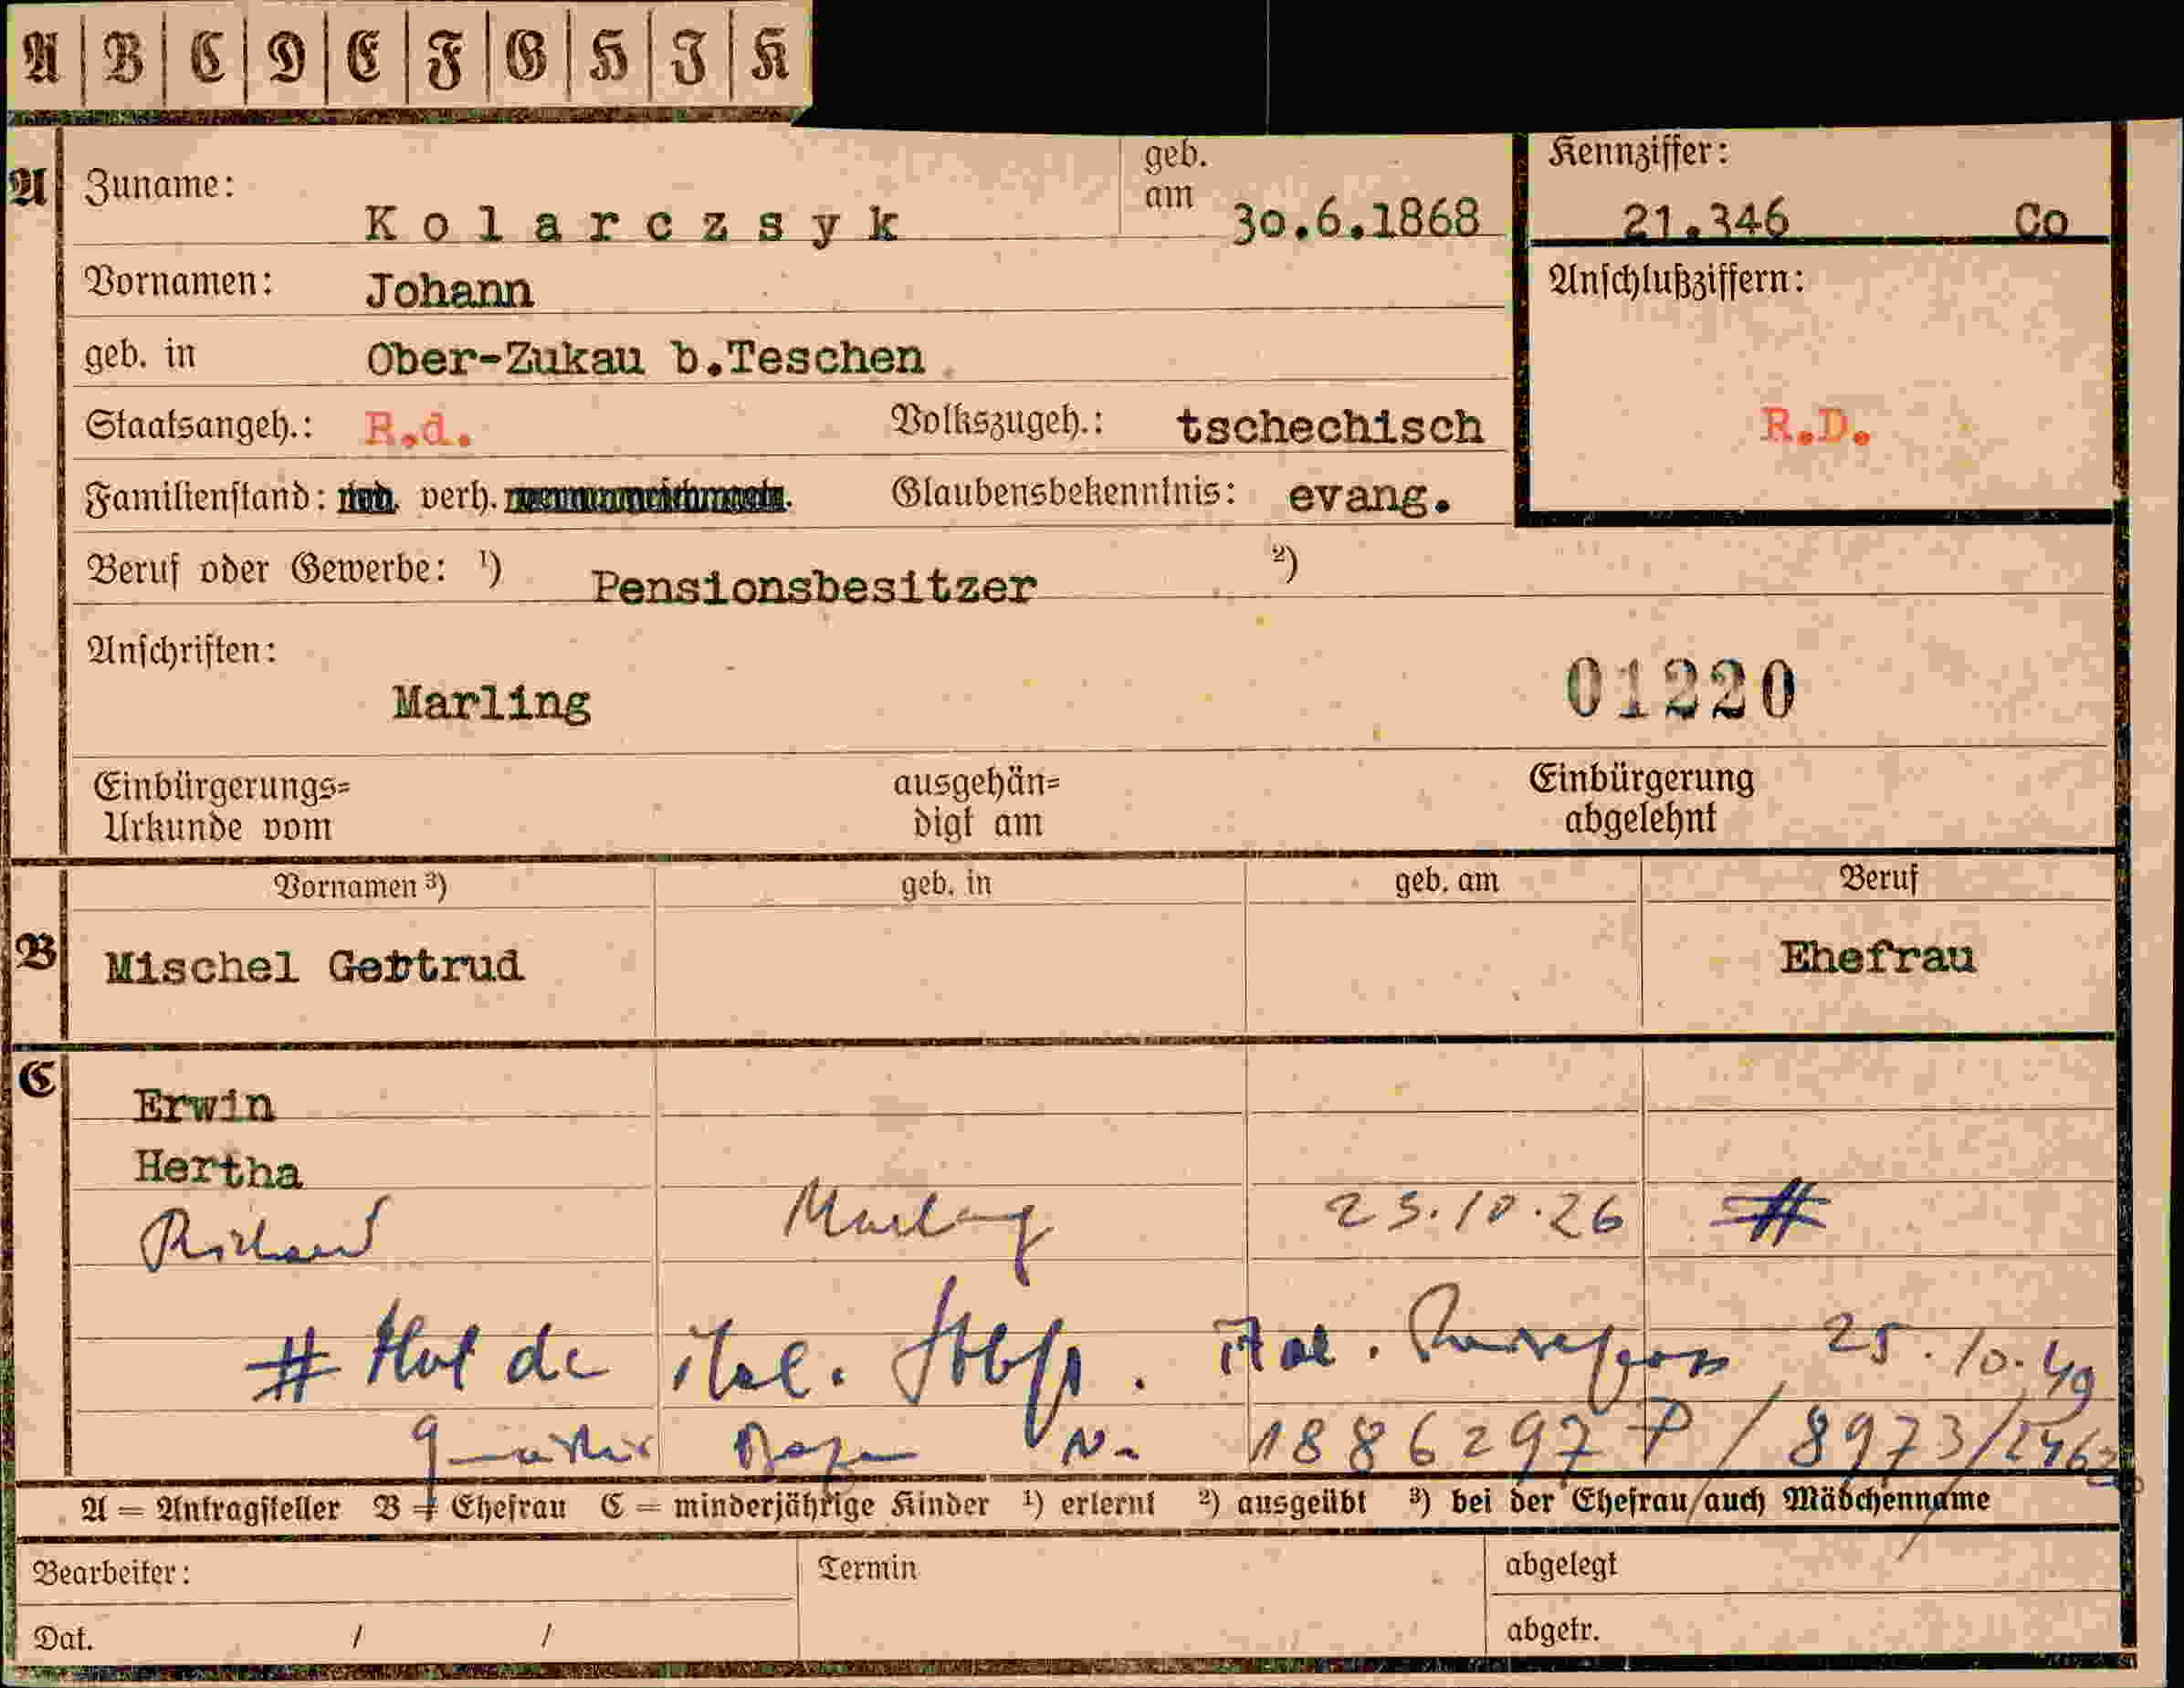 A B C D E F G H J K
A Zuname: Kolarczsyk geb. am 30.6.1868 Kennziffer: 21.346 Co
Vornamen: Johann Anschlußziffern:
geb. in Ober-Zukau b.Teschen
Staatsangeh.: R.d. Volkszugeh.: tschechisch R.D.
Familienstand: verh. Glaubensbekenntnis: evang.
Beruf oder Gewerbe: ¹) Pensionsbesitzer ²)
Anschriften:
Marling 01220
Einbürgerungs= ausgehän= Einbürgerung
Urkunde vom digt am abgelehnt
Vornamen ³) geb. in geb. am Beruf
B Mischel Gertrud Ehefrau
C
Erwin
Hertha
Richard Marling 23.10.26 #
# Hat de ital. Stbsh. Ital. Reisepass 25.10.49
Quästur Bozen N. 1886297 P / 8973/
A = Antragsteller B = Ehefrau C = minderjährige Kinder ¹) erlernt ²) ausgeübt ³) bei der Ehefrau auch Mädchenname
Bearbeiter: Termin abgelegt
Dat. / / abgetr.